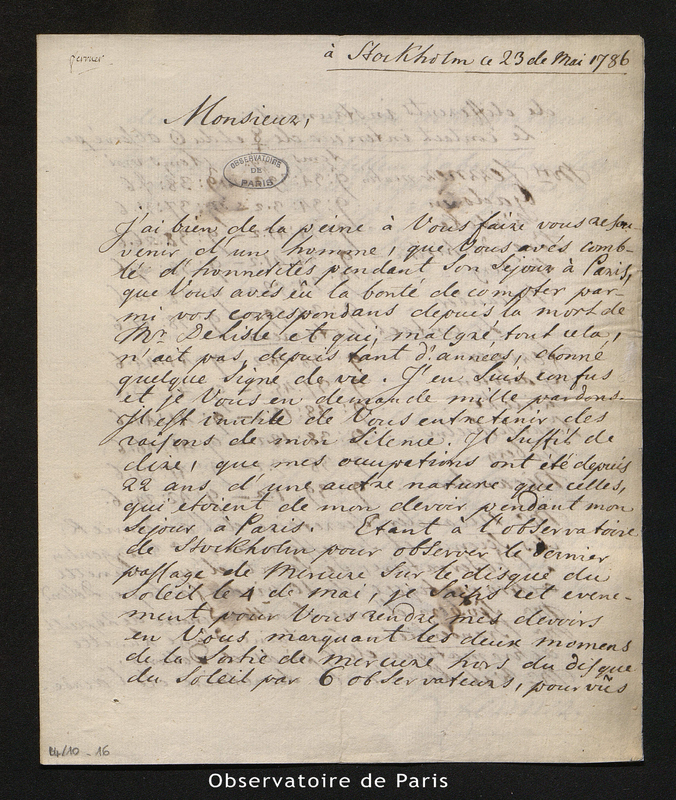 à Stockholm ce 23 de Mai 1786
Monsieur,
OBSERVATOIRE
DE
PARIS
J'ai bien de la peine à Vous faire vous resou
venir d'un homme, que Vous avés comb-
lé d'honnetetés pendant son sejour à Paris,
que Vous avés eû la bonté de compter par-
mi vos correspondans depuis la mort de
Mr. DeLisle et qui, malgré tout cela,
n'ait pas, depuis tant d'années, donné
quelque signe de vie. J'en suis confus
et je Vous en demande mille pardons.
Il est inutile de Vous entretenir des
raisons de mon silence. Il suffit de
dire, que mes occupations ont été depuis
22 ans, d'une autre nature que celles,
qui etoient de mon devoir pendant mon
sejour à Paris. Etant à l'observatoire
de Stockholm pour observer le dernier
passage de Mercure sur le disque du
Soleil le 4 de mai, je saisis cet evene-
ment pour Vous rendre mes devoirs
en Vous marquant les deux momens
de la sortie de mercure hors du disque
du Soleil par 6 observateurs, pourvûs
14/10 - 16
Observatoire de Paris